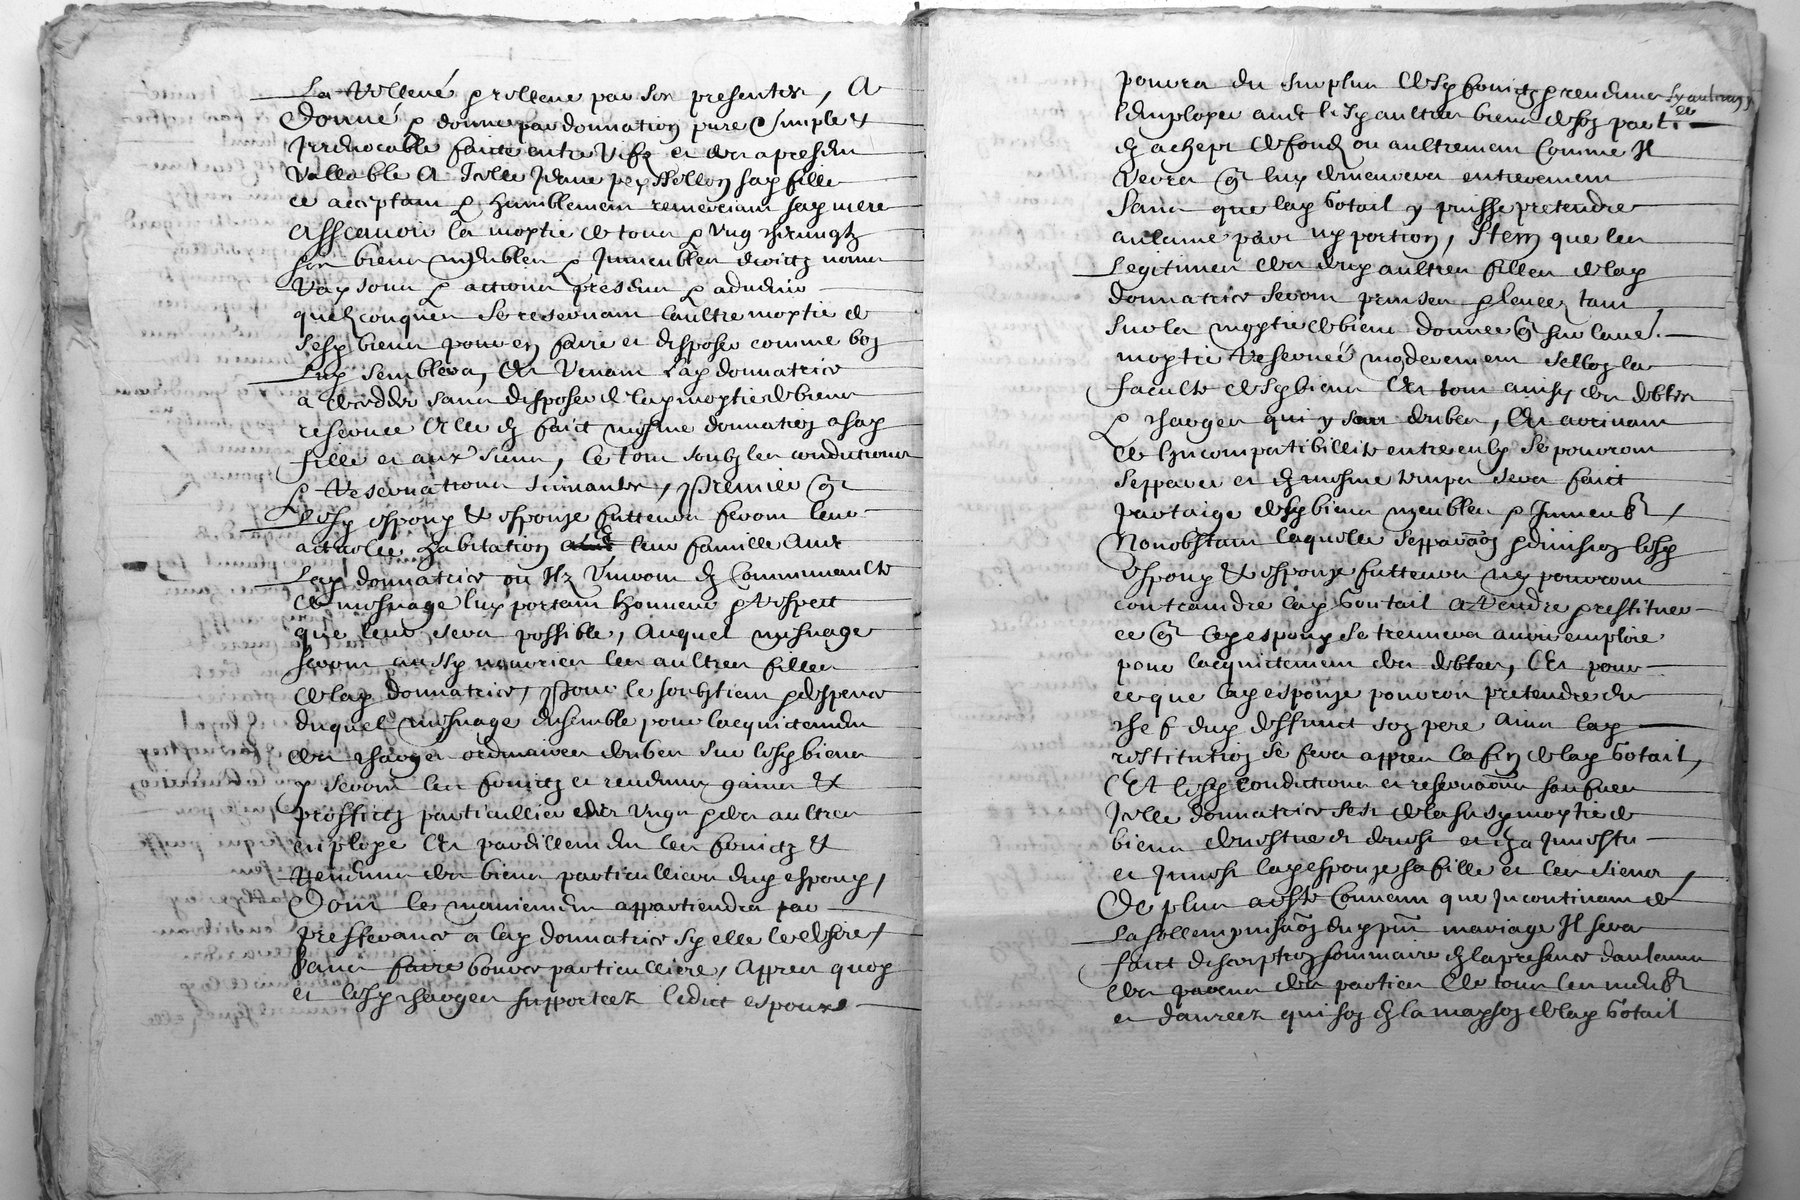 La rellevé & relleve par ses presentes, A
Donné & donne par donnation pure simple &
Irrevocable faicte entre vifz et des apresent
Vallable A Icelle Jeane peyssellon sa fille
ce acceptant & humblement remerciant sa mere
Asscavoir la moytie de tous & ung chacungz
ses biens meubles & Immeubles droictz noms
Raysons & actions presens & advenir
quelzconques se reservant laultre moytie de
sesd biens pour en faire et disposer comme bon
Luy semblera, Et Venant lad donnatrice
a decedder sans disposer de lad moytie de biens
reservee Elle en faict mesme donnation a sad
fille et aux siens, Le tout soubz les conditions
& reservations suivantes, Premier que
Lesd espoux & espouse futteurs feront leur
actuelle habitation leur famille avec
Lad donnatrice ou Ilz vivront en Communaulte
de mesnage luy portant honneur & respect
que leur sera possible, Auquel mesnage
seront aussy nourries les aultres filles
de lad donnatrice, Pour le soubztien & despence
duquel mesnage ensemble pour lacquictement
des charges ordinaires deubes sur lesd biens
y seront les fruictz et revenus gains &
proffictz particullier des ungs & des aultres
employe Et pareillement les fruictz &
Revenus des biens particulliers dud espoux,
Dont le maniement appartiendra par
prefferance a lad donnatrice sy elle le desire,
sans faire bource particulliere, Appres quoy
et lesd charges supportees ledict espoux
pourra du surplus desd fruictz & revenus
lemployer aud lieu aultres biens de son party
en achept de fondz ou aultrement Comme Il
verra que luy demeurera entierement
sans que lad Botail y puisse pretendre
aulcune part ny portion, Item que les
Legitimes des aultres filles de lad
donnatrice seront prinses & levees tant
sur la moytie de biens donnee que sur laue.
moytie reservee moderement sellon la
faculte desd biens Et tout ainsy des debtes
& charges qui y sont deubes, Et advenant
de Lincompatibillite entre eulx se pourront
seppares et en mesme temps sera faict
partaige desd biens meubles & Immeub.,
Nonobstant laquelle sepparaon & division lesd
espoux & espouse futteurs ny pourront
contraindre lad Boutail a rendre & restituer
ce que led espoux se treuvera avoir employe
pour lacquictement des debtes, Et pour
ce que lad espouse pourroit pretendre du
chef dud deffunct son pere Ains lad
restitution se fera appres la fin de lad Botail,
Et lesd conditions et reservaons saufves
Icelle donnatrice sest de la susd moytie de
biens devestue et devest et en a Investu
et Invest lad espouse sa fille et les siens,
De plus a este Convenu que Incontinant de
La sollempnisaon dud pnt mariage Il sera
faict description sommaire en la presence daulcuns
des parens des parties de tous les meub.
et danrees qui son en la mayson de lad Botail